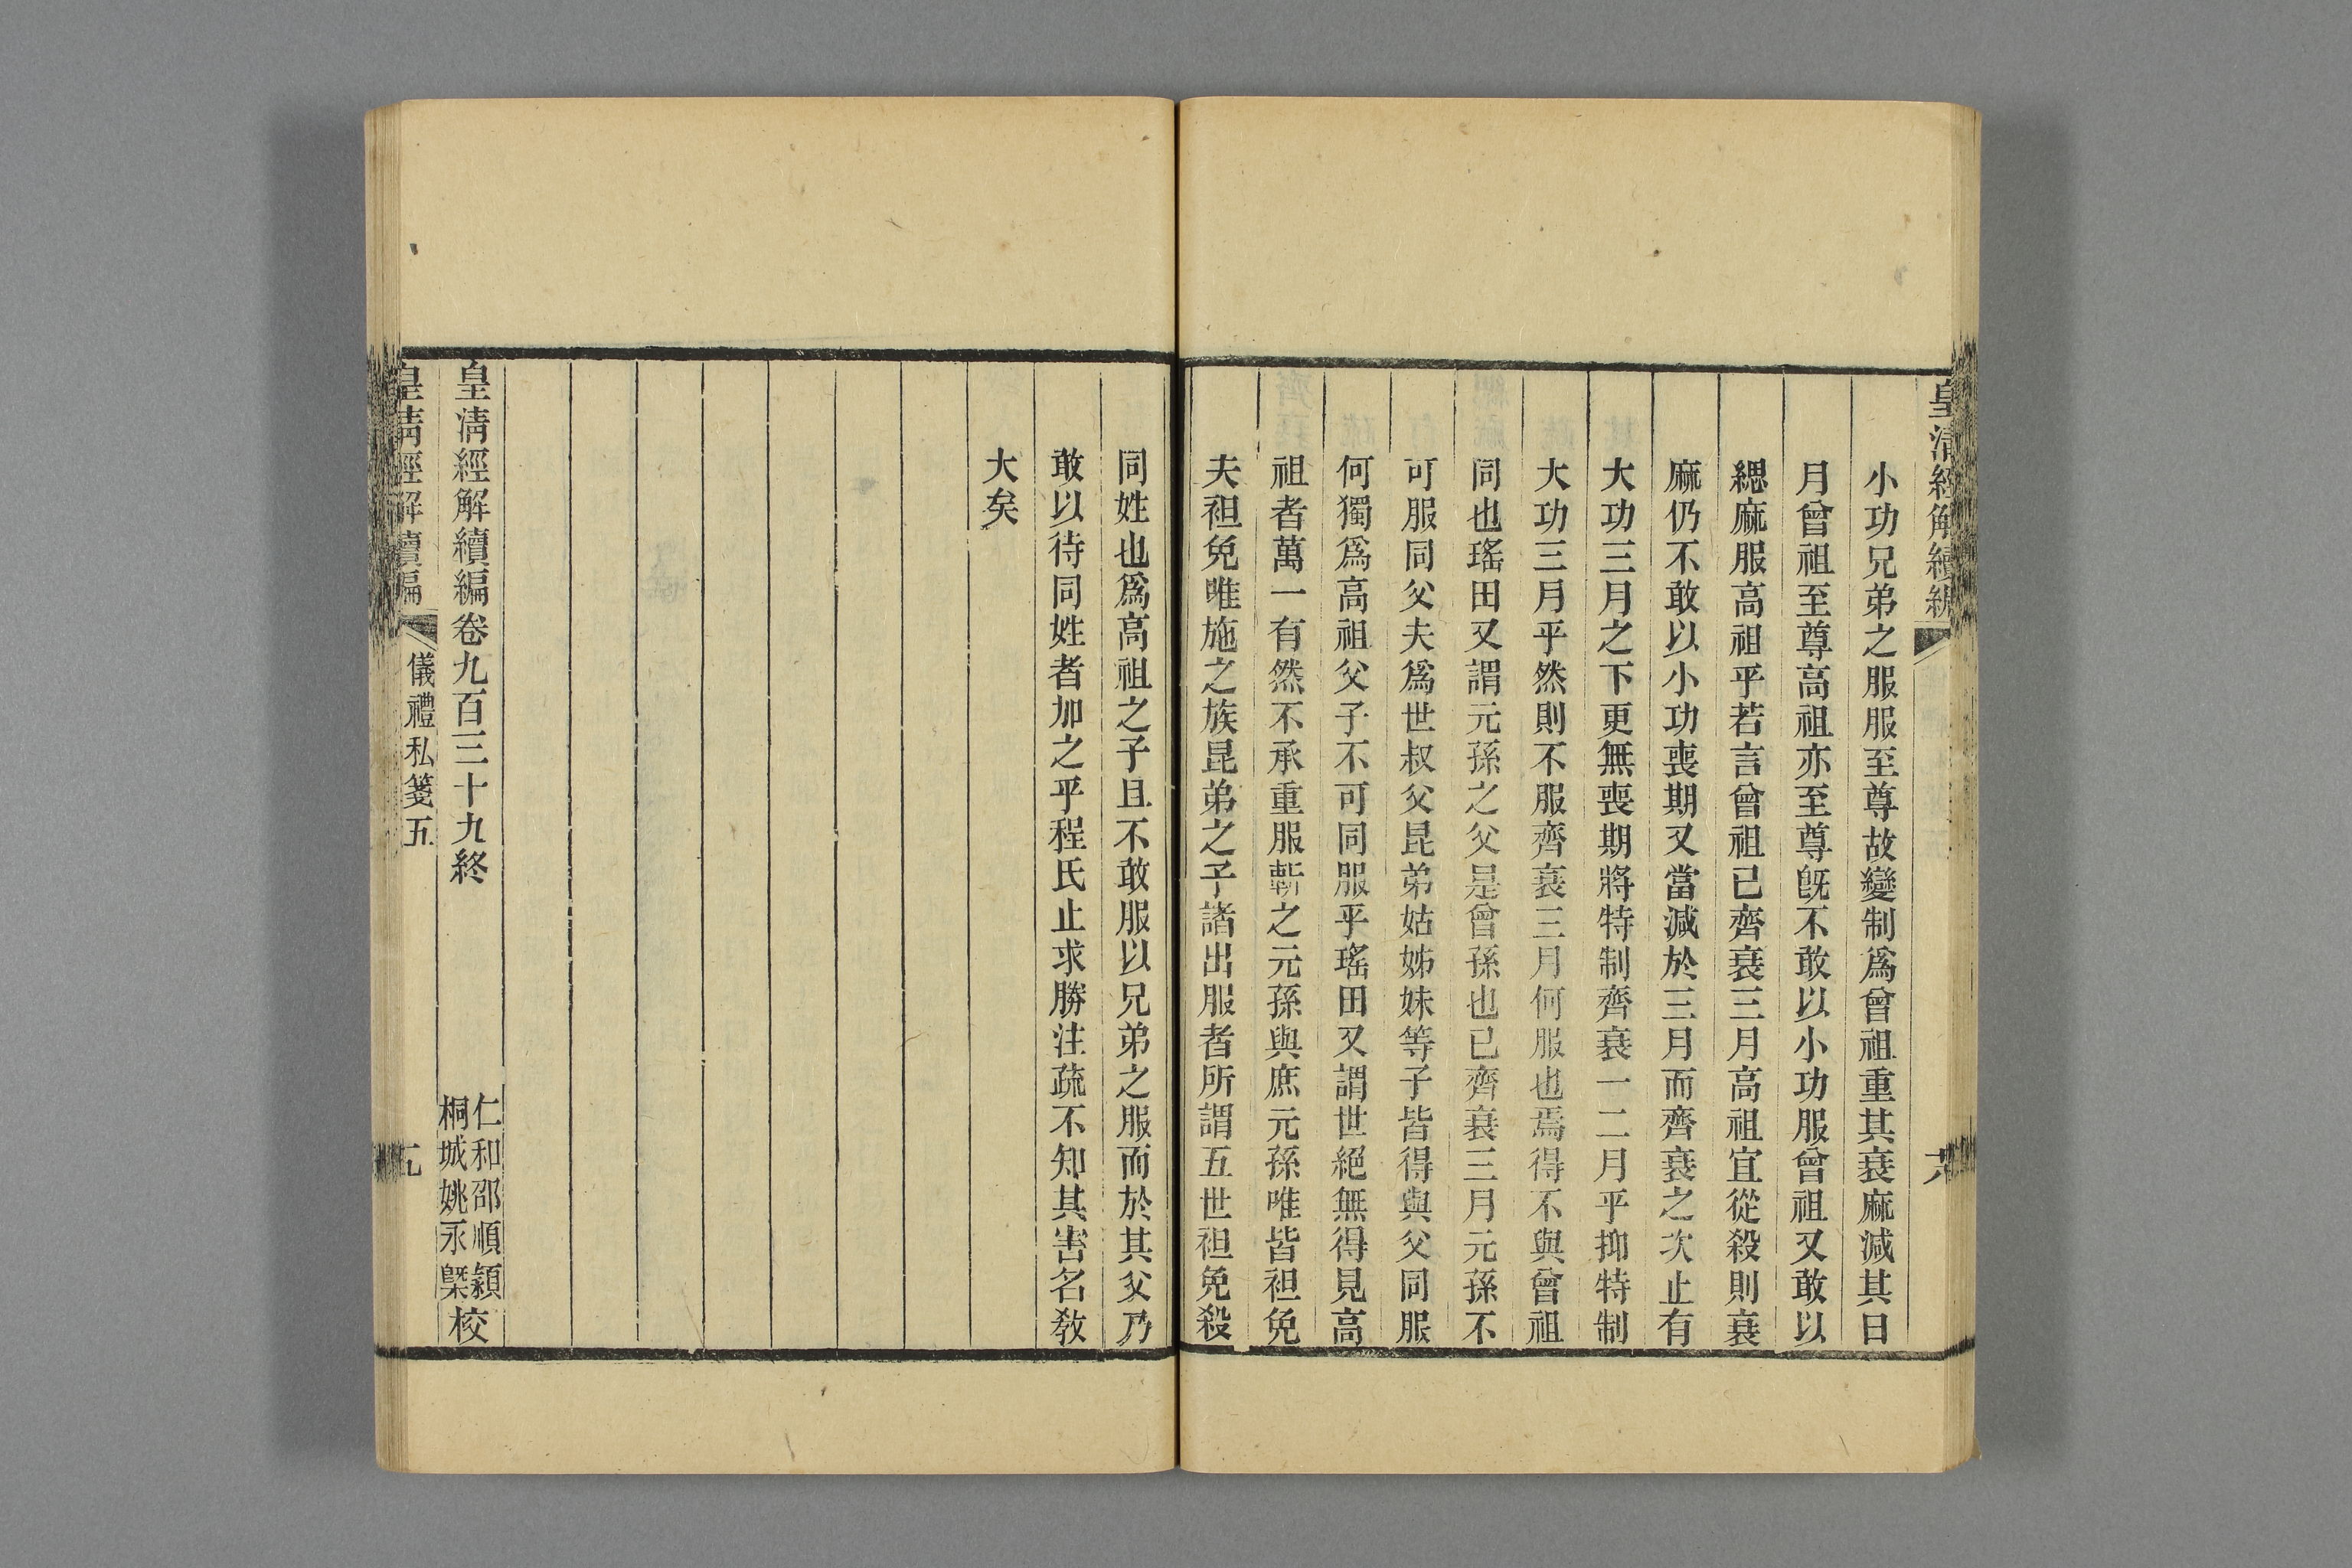 皇清經解續編
小功兄弟之服服至尊故變制爲曾祖重其衰麻減其日
月曾祖至尊高祖亦至尊旣不敢以小功服曾祖又敢以
緦麻服高祖乎若言曾祖已齊衰三月高祖宜從殺則衰
麻仍不敢以小功喪期又當減於三月而齊衰之次止有
大功三月之下更無喪期將特制齊衰一二月乎抑特制
大功三月乎然則不服齊衰三月何服也焉得不與曾祖
同也瑤田又謂元孫之父是曾孫也已齊衰三月元孫不
可服同父夫爲世叔父昆弟姑姊妹等子皆得與父同服
何獨爲高祖父子不可同服乎瑤田又謂世絕無得見高
祖者萬一有然不承重服斬之元孫與庶元孫唯皆袒免
夫袒免唯施之族昆弟之子諸出服者所謂五世袒免殺
同姓也爲高祖之子且不敢服以兄弟之服而於其父乃
敢以待同姓者加之乎程氏止求勝注疏不知其害名敎
大矣
皇清經解續編卷九百三十九終
仁和邵順潁
桐城姚永槩
校
皇清經解續編
儀禮私箋五